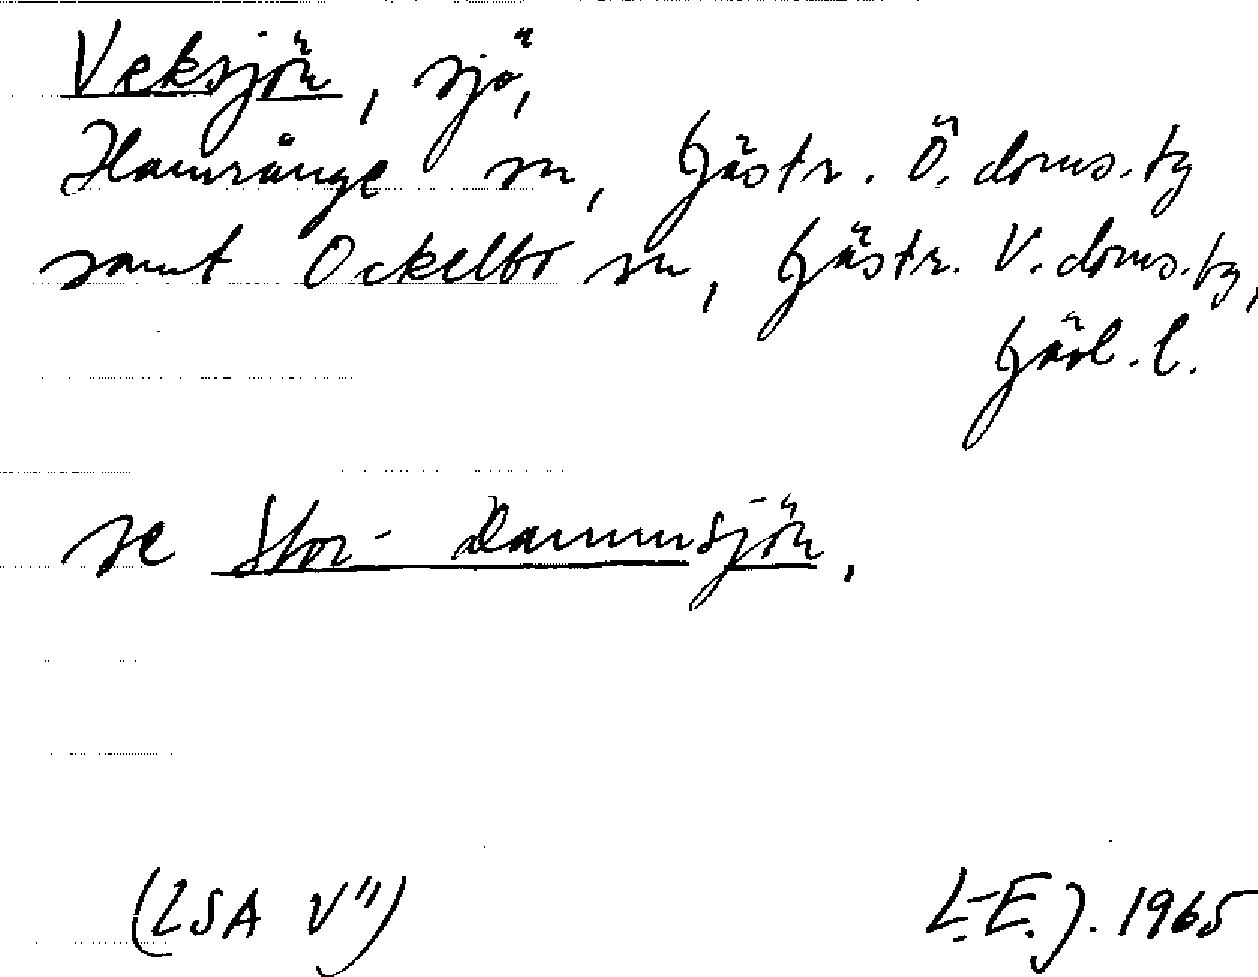 Veksjön, sjö,
Hamrånge sn, Gästr. Ö. doms.tg
samt Ockelbo sn, Gästr. V. doms.tg,
Gävl. l.
se Stor-Dammsjön,
(LSA V") L-E.J. 1965